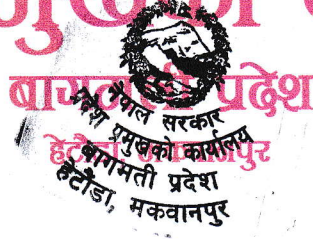 बागमती प्रदेश
हेटौंडा, मकवानपुर
नेपाल सरकार
प्रदेश प्रमुखको कार्यालय
बागमती प्रदेश
हेटौंडा, मकवानपुर